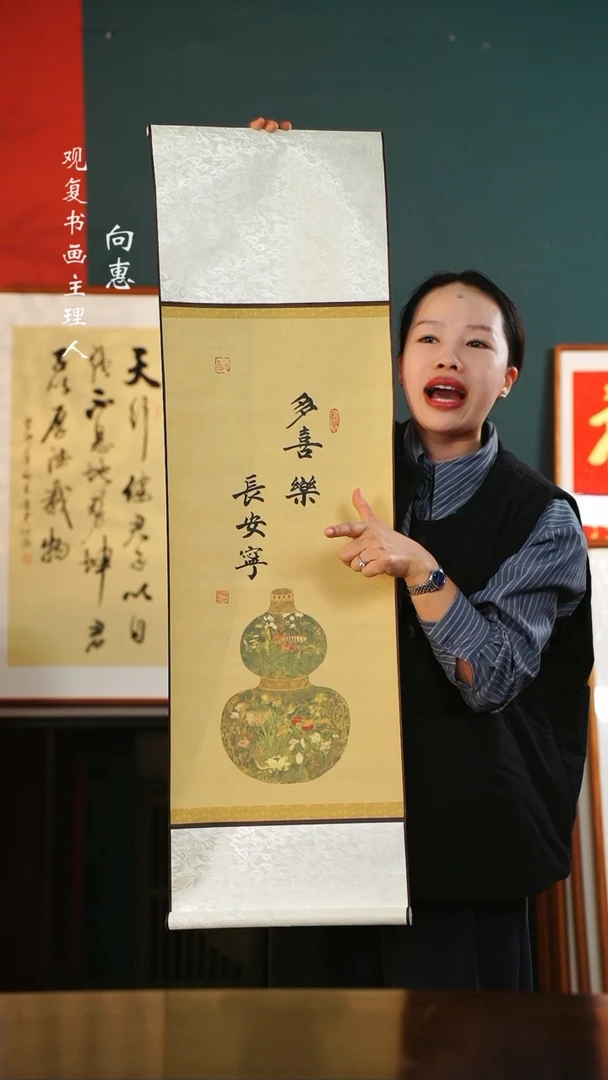 观复书画主理人
向惠
多喜樂
長安寧
天行健君子以自
强不息地势坤君
厚德载物